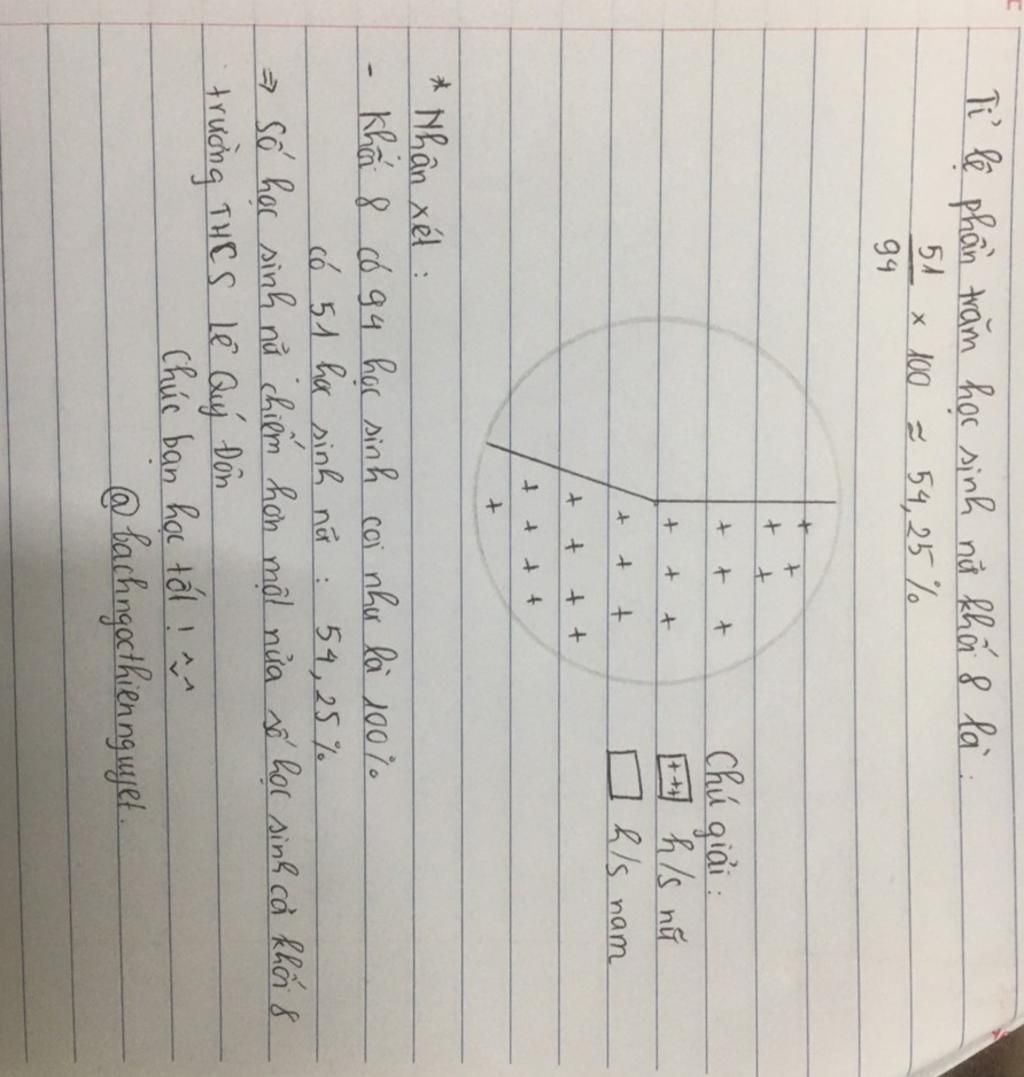 Tỉ lệ phần trăm học sinh nữ khối 8 là:
51
94
× 100 ≈ 54,25%
Chú giải:
+++ h/s nữ
h/s nam
* Nhận xét:
- Khối 8 có 94 học sinh coi như là 100%
có 51 học sinh nữ: 54,25%
⇒ Số học sinh nữ chiếm hơn một nửa số học sinh cả khối 8
trường THCS Lê Quý Đôn
Chúc bạn học tốt! ^^
@bachngocthiennguyet.